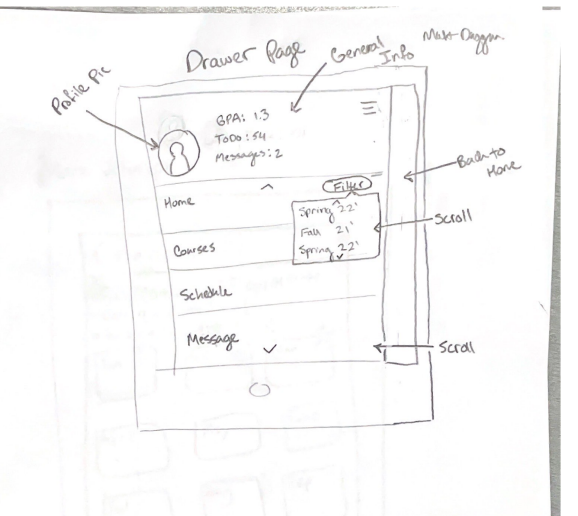 Drawer Page
General
Info
Profile Pic
GPA: 1.3
ToDo: 54
Messages: 2
Back to
Home
Home
Filter
Spring 22'
Fall 21'
Spring 22'
Scroll
Courses
Schedule
Message
Scroll